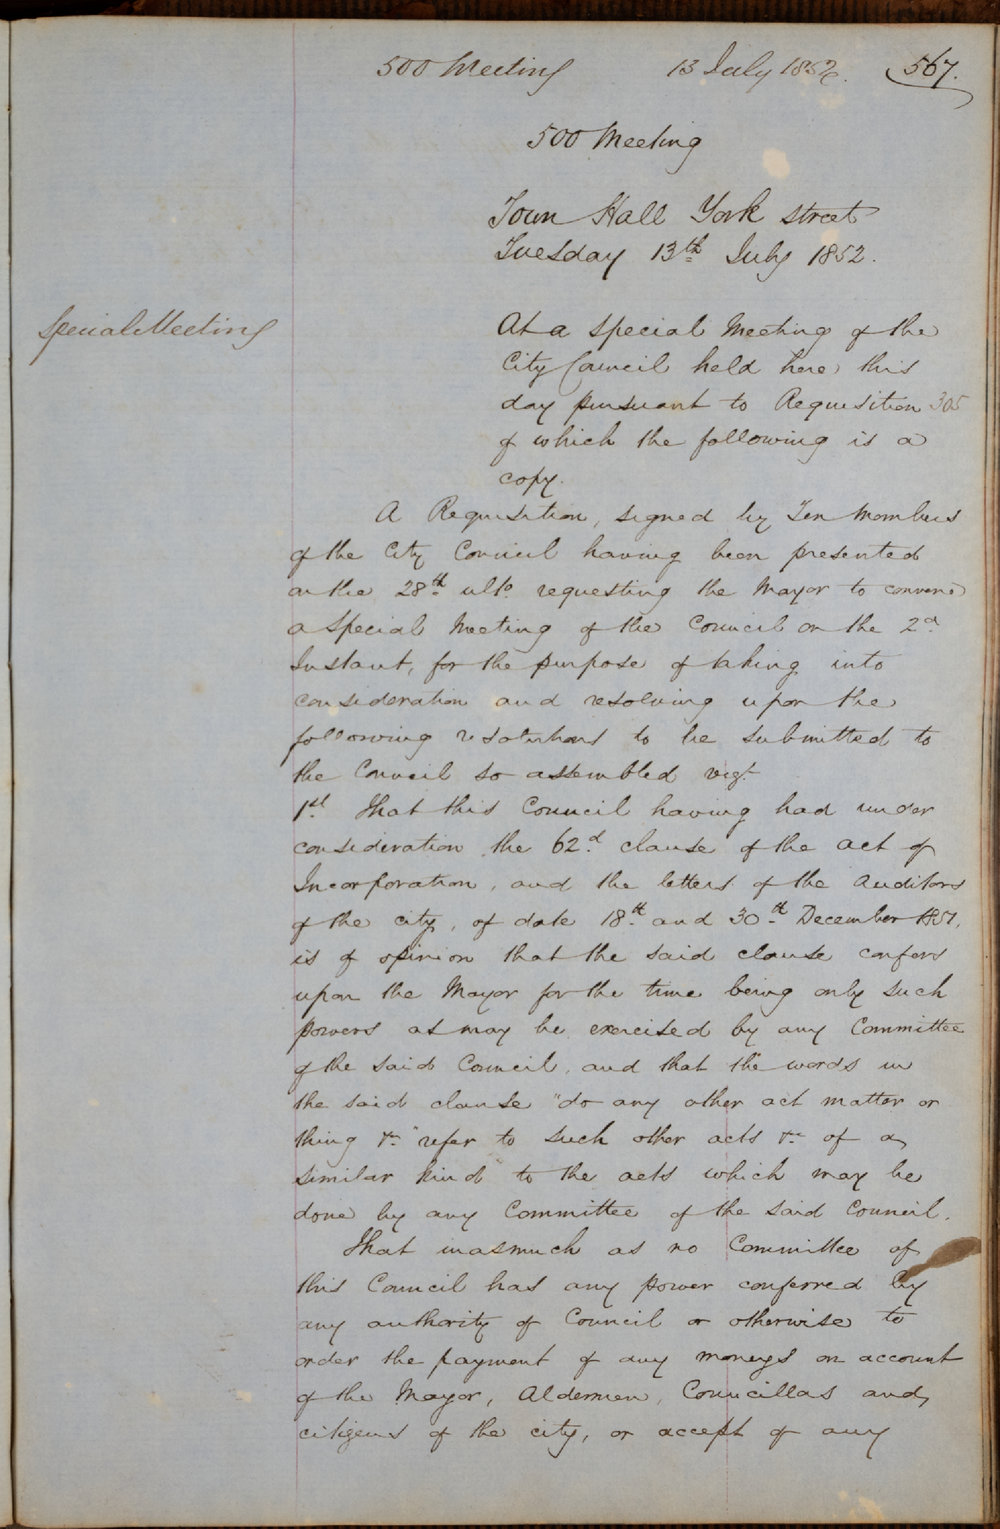 500 Meeting 13 July 1852. 567.
500 Meeting
Town Hall York street
Tuesday 13th July 1852.
Special Meeting
At a Special Meeting of the
City Council held here this
day pursuant to Requisition 305
of which the following is a
copy.
A Requisition, signed by Ten Members
of the City Council having been presented
on the 28th ulto. requesting the Mayor to convene
a Special Meeting of the Council on the 2d
Instant, for the purpose of taking into
consideration and resolving upon the
following resolutions to be submitted to
the Council so assembled vizt.
1st. That this Council having had under
consideration the 62d clause of the act of
Incorporation, and the letters of the Auditors
of the city, of date 18th and 30th December 1851,
is of opinion that the said clause confers
upon the Mayor for the time being only such
powers as may be exercised by any Committee
of the said Council, and that the words in
the said clause "do any other act matter or
thing &c" refer to such other acts &c of a
similar kind to the acts which may be
done by any Committee of the said Council.
That inasmuch as no Committee of
this Council has any power conferred by
any authority of Council or otherwise to
order the payment of any moneys on account
of the Mayor, Aldermen, Councillors and
citizens of the city, or accept of any